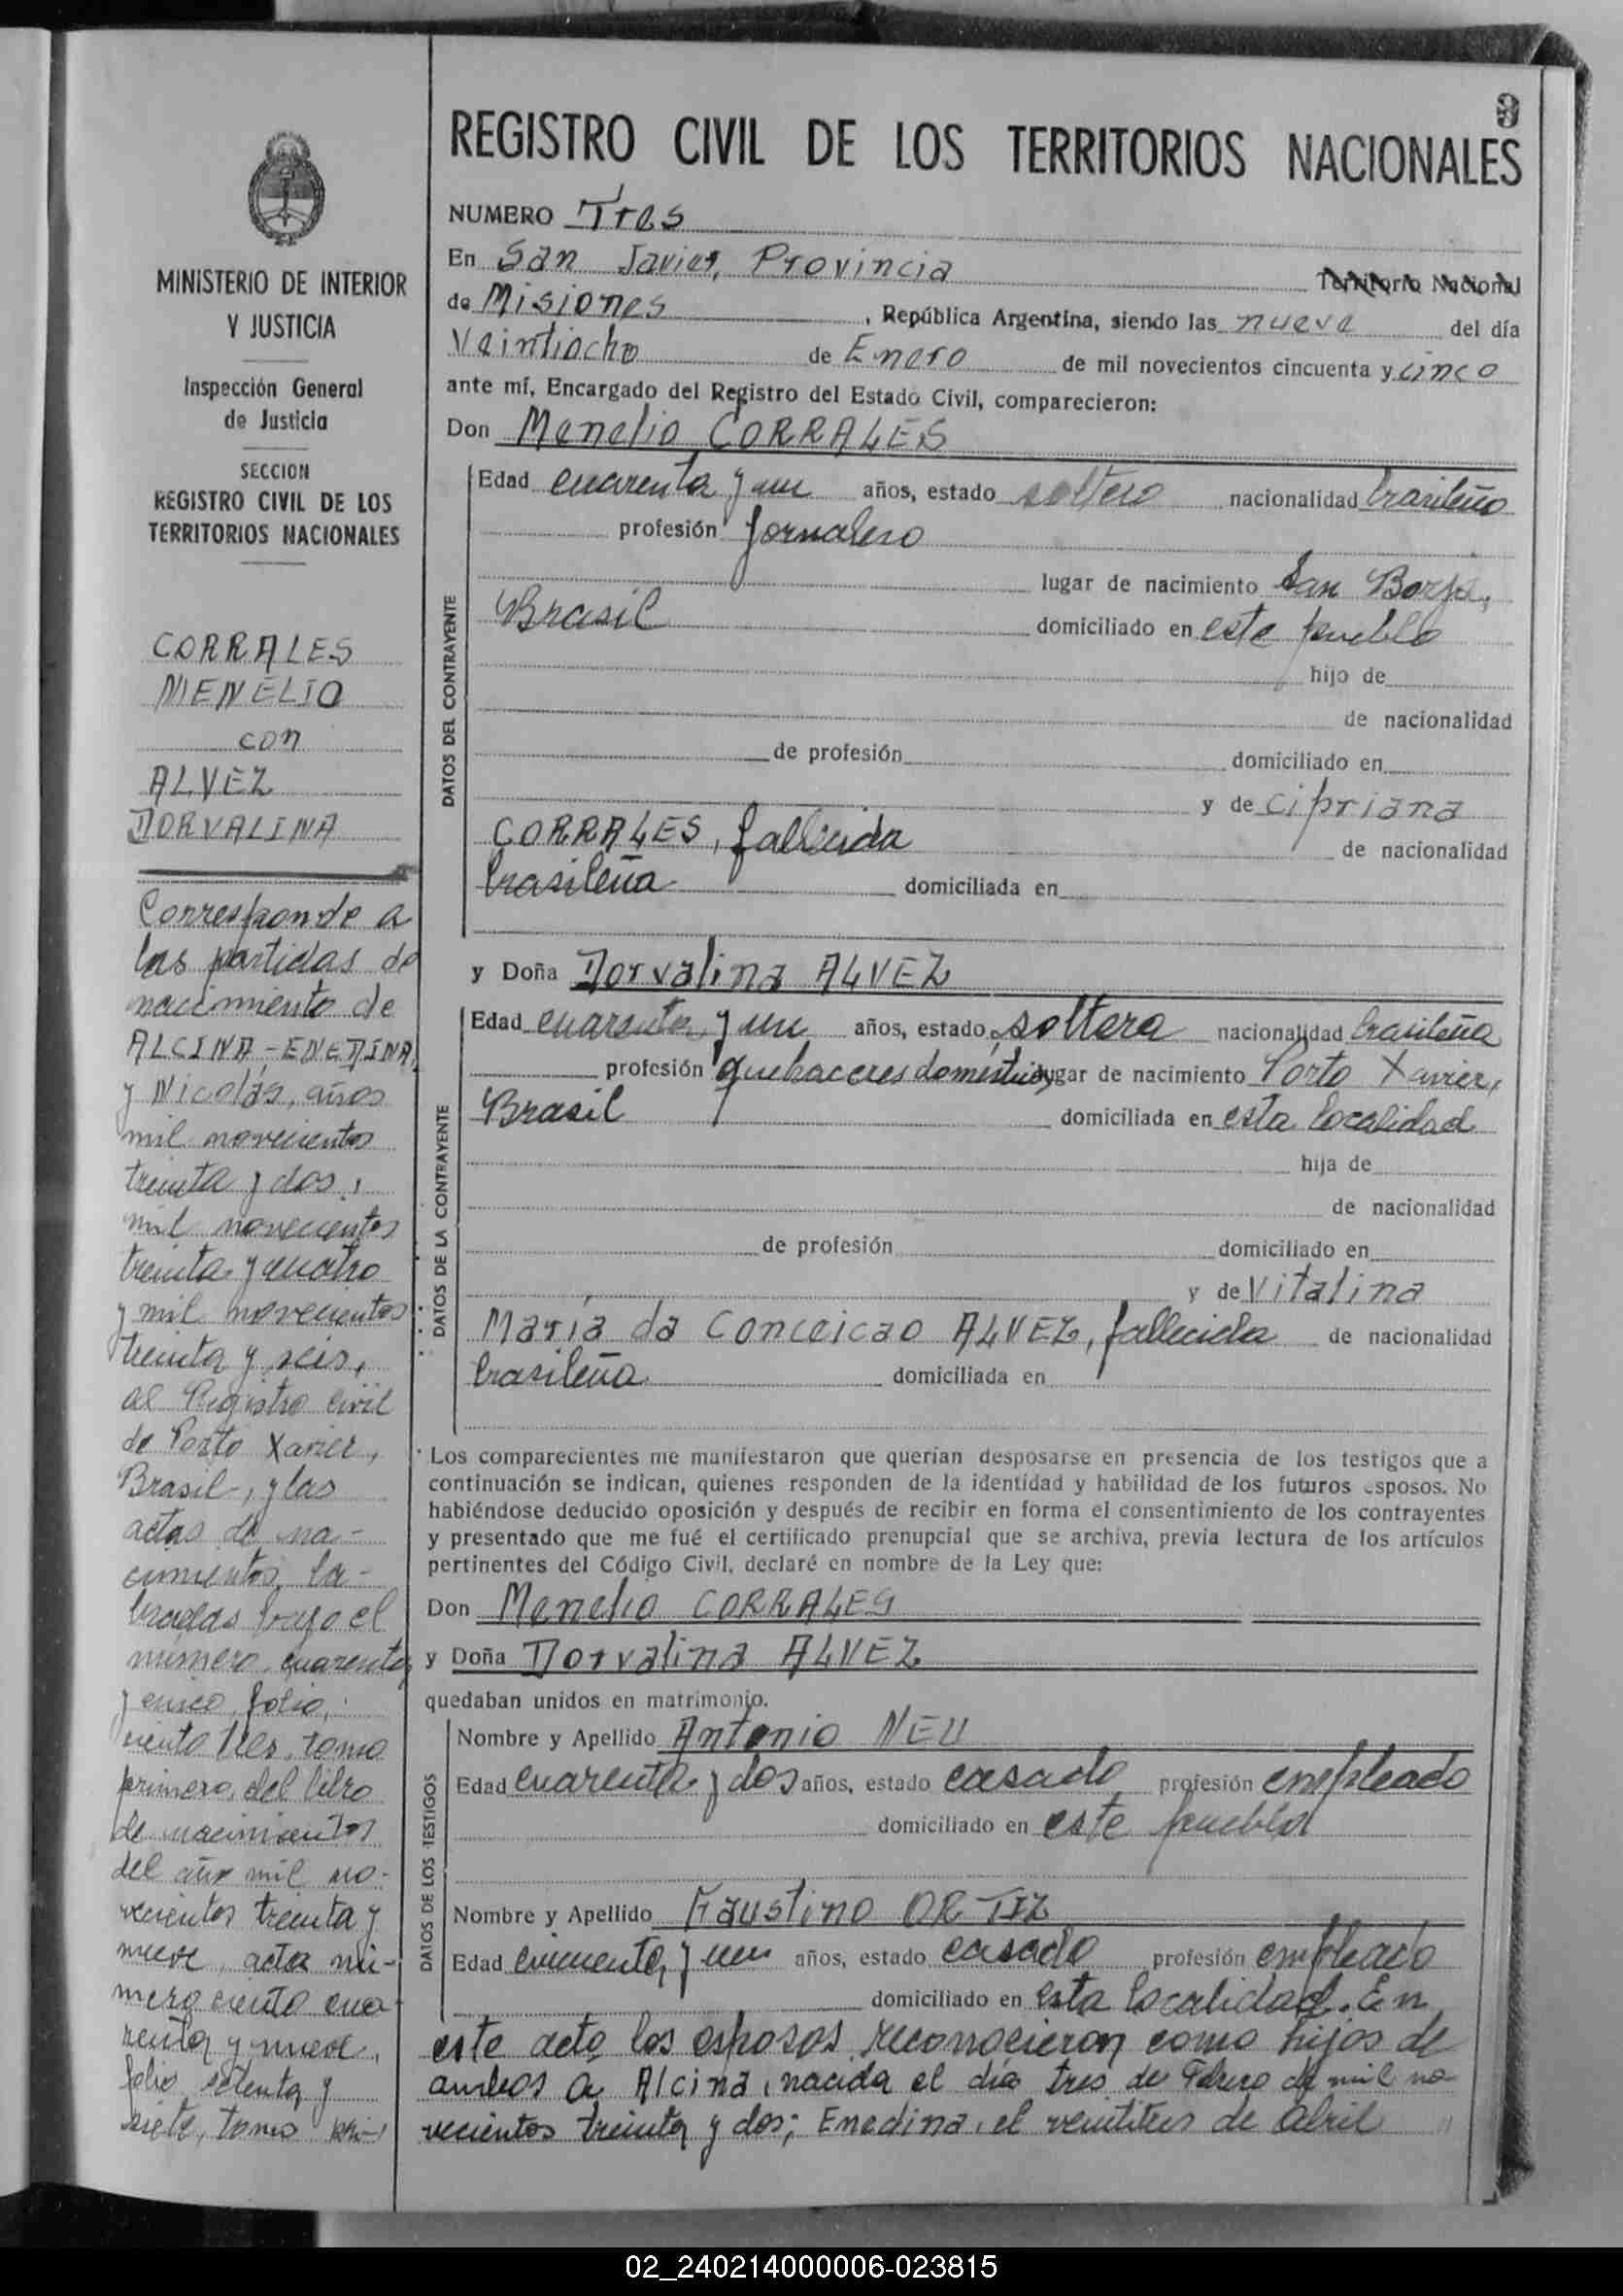 9
REGISTRO CIVIL DE LOS TERRITORIOS NACIONALES
NUMERO Tres
En San Javier, Provincia Territorio Nacional
de Misiones, República Argentina, siendo las nueve del día
Veintiocho de Enero de mil novecientos cincuenta y cinco
ante mí, Encargado del Registro del Estado Civil, comparecieron:
Don Menelio CORRALES
DATOS DEL CONTRAYENTE
Edad cuarenta y un años, estado soltero nacionalidad brasileño
profesión Jornalero
lugar de nacimiento San Borja,
Brasil domiciliado en este pueblo
hijo de
de nacionalidad
de profesión domiciliado en
y de Cipriana
CORRALES, fallecida de nacionalidad
brasileña domiciliada en
y Doña Dorvalina ALVEZ
DATOS DE LA CONTRAYENTE
Edad cuarenta y un años, estado soltera nacionalidad brasileña
profesión quehaceres domésticos lugar de nacimiento Porto Xavier,
Brasil domiciliada en esta localidad
hija de
de nacionalidad
de profesión domiciliado en
y de Vitalina
María da Conceicao ALVEZ, fallecida de nacionalidad
brasileña domiciliada en
Los comparecientes me manifestaron que querían desposarse en presencia de los testigos que a
continuación se indican, quienes responden de la identidad y habilidad de los futuros esposos. No
habiéndose deducido oposición y después de recibir en forma el consentimiento de los contrayentes
y presentado que me fué el certificado prenupcial que se archiva, previa lectura de los artículos
pertinentes del Código Civil, declaré en nombre de la Ley que:
Don Menelio CORRALES
y Doña Dorvalina ALVEZ
quedaban unidos en matrimonio.
DATOS DE LOS TESTIGOS
Nombre y Apellido Antonio NEU
Edad cuarenta y dos años, estado casado profesión empleado
domiciliado en este pueblo
Nombre y Apellido Faustino ORTIZ
Edad cincuenta y un años, estado casado profesión empleado
domiciliado en esta localidad. En
este acto los esposos reconocieron como hijos de
ambos a Alcina, nacida el día tres de Febrero de mil no
vecientos treinta y dos; Enedina, el veintitres de abril
MINISTERIO DE INTERIOR
Y JUSTICIA
Inspección General
de Justicia
SECCION
REGISTRO CIVIL DE LOS
TERRITORIOS NACIONALES
CORRALES
MENELIO
con
ALVEZ
DORVALINA
Corresponde a
las partidas de
nacimiento de
ALCINA - ENEDINA
y Nicolás, años
mil novecientos
treinta y dos,
mil novecientos
treinta y cuatro
y mil novecientos
treinta y seis,
del Registro Civil
de Porto Xavier,
Brasil, y las
actas de na-
cimientos la-
bradas bajo el
número cuarenta
y cinco, folio
ciento tres, tomo
primero, del libro
de nacimientos
del año mil no-
vecientos treinta y
nueve, acta nú-
mero ciento cua-
renta y nueve,
folio setenta y
siete, tomo pri-
02_240214000006-023815